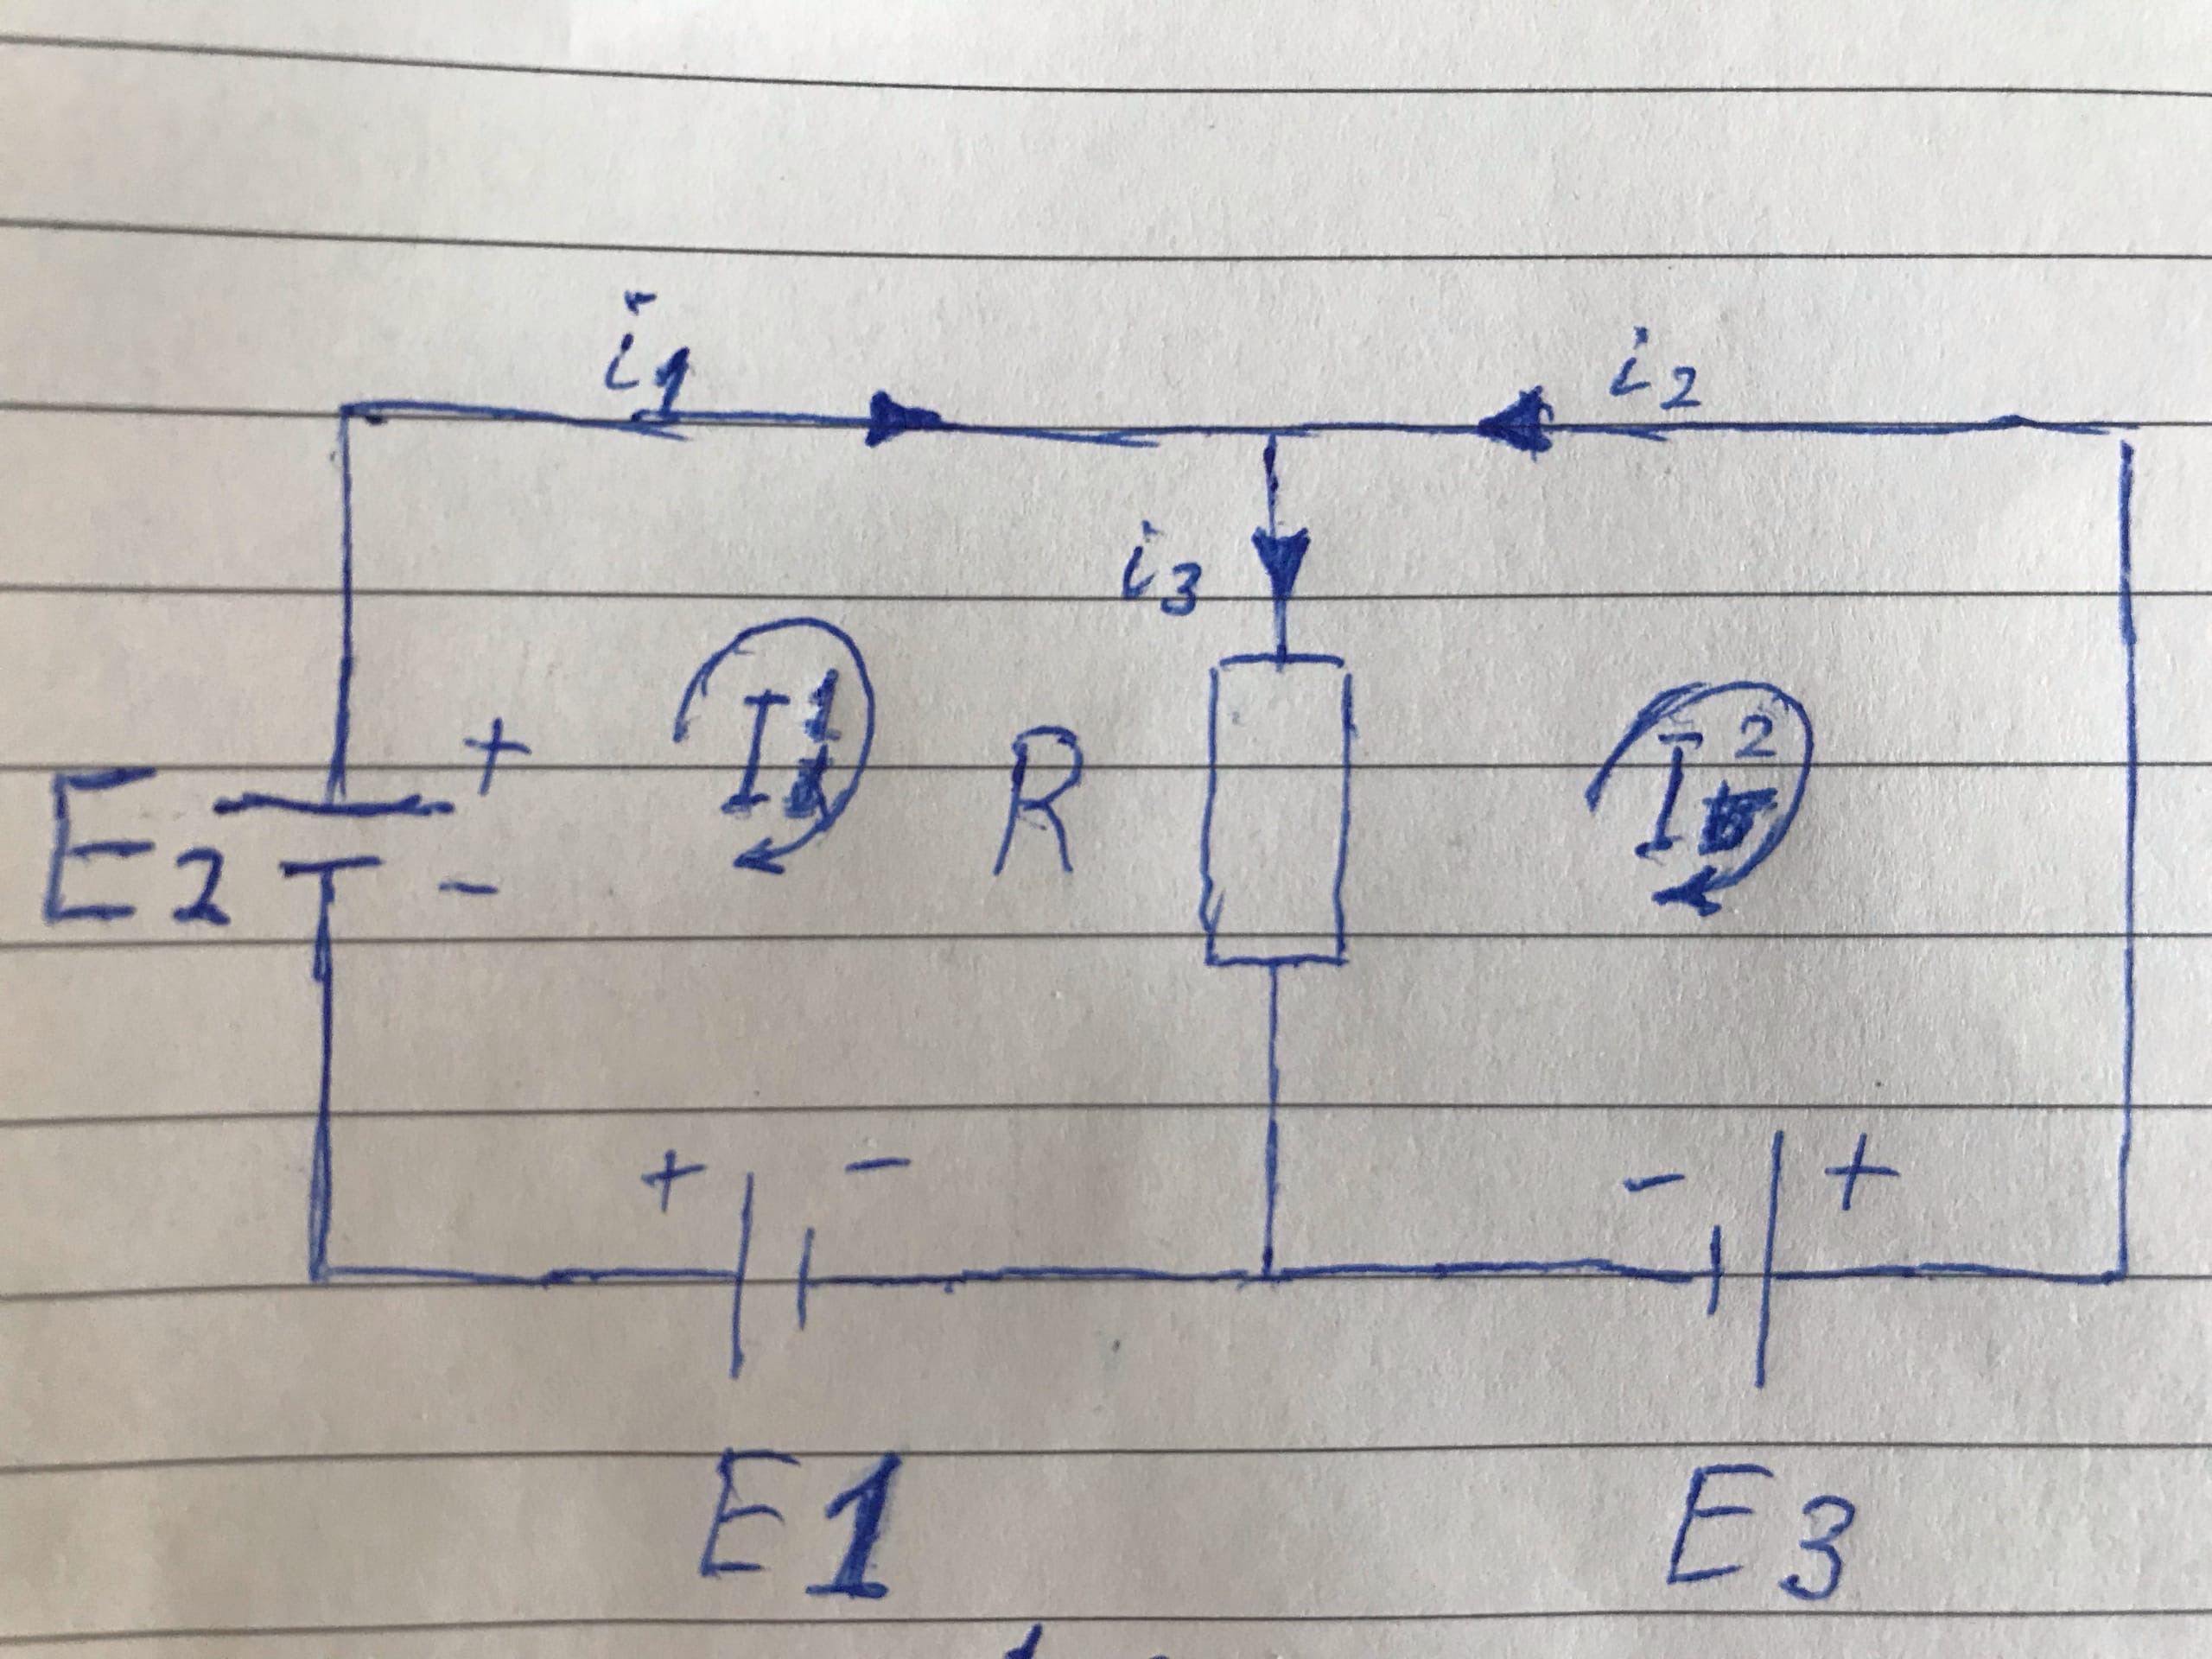 i1
i2
i3
I1
I2
R
+
E2
-
+ -
- +
E1
E3